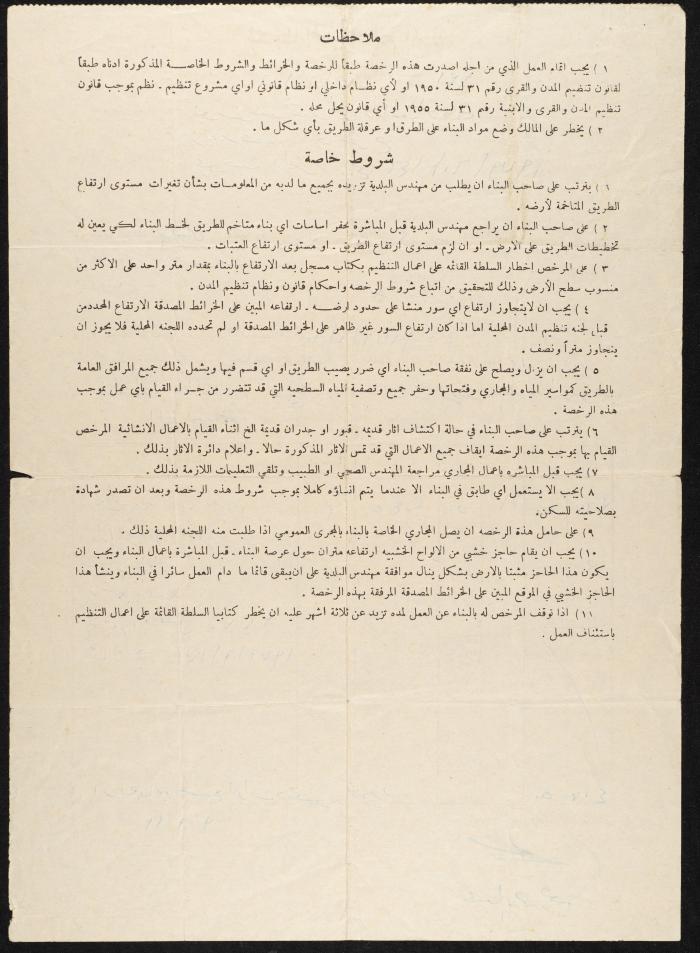 ملاحظات
١ ) يجب اتمام العمل الذي من اجله اصدرت هذه الرخصة طبقاً للرخصة والخرائط والشروط الخاصة المذكورة ادناه طبقاً
لقانون تنظيم المدن والقرى رقم ٣١ لسنة ١٩٥٠ او لأي نظام داخلي او نظام قانوني او اي مشروع تنظيم ـ نظم بموجب قانون
تنظيم المدن والقرى والابنية رقم ٣١ لسنة ١٩٥٥ او أي قانون يحل محله .
٢ ) يحظر على المالك وضع مواد البناء على الطرق او عرقلة الطريق بأي شكل ما .
شروط خاصة
١) يترتب على صاحب البناء ان يطلب من مهندس البلدية تزويده بجميع ما لديه من المعلومات بشأن تغيرات مستوى ارتفاع
الطريق المتاخمة لأرضه .
٢ ) على صاحب البناء ان يراجع مهندس البلدية قبل المباشرة بحفر اساسات اي بناء متاخم للطريق لخط البناء لكي يعين له
تخطيطات الطريق على الارض ـ او ان لزم مستوى ارتفاع الطريق ـ او مستوى ارتفاع العتبات .
٣ ) على المرخص اخطار السلطة القائمه على اعمال التنظيم بكتاب مسجل بعد الارتفاع بالبناء بمقدار متر واحد على الاكثر من
منسوب سطح الأرض وذلك للتحقيق من اتباع شروط الرخصه واحكام قانون ونظام تنظيم المدن .
٤ ) يجب ان لايتجاوز ارتفاع اي سور منشا على حدود ارضه ـ ارتفاعه المبين على الخرائط المصدقة الارتفاع المحددمن
قبل لجنه تنظيم المدن المحلية اما اذا كان ارتفاع السور غير ظاهر على الخرائط المصدقة او لم تحدده اللجنه المحلية فلا يجوز ان
يتجاوز متراً ونصف .
٥ ) يجب ان يزال ويصلح على نفقة صاحب البناء اي ضرر يصيب الطريق او اي قسم فيها ويشمل ذلك جميع المرافق العامة
بالطريق كمواسير المياه والمجاري وفتحاتها وحفر جميع وتصفية المياه السطحيه التي قد تتضرر من جراء القيام باي عمل بموجب
هذه الرخصة .
٦) يترتب على صاحب البناء في حالة اكتشاف اثار قديمه ـ قبور او جدران قديمة الخ اثناء القيام بالاعمال الانشائية المرخص
القيام بها بموجب هذه الرخصة ايقاف جميع الاعمال التي قد تمس الاثار المذكورة حالا ـ واعلام دائرة الاثار بذلك .
٧) يجب قبل المباشره باعمال المجاري مراجعة المهندس الصحي او الطبيب وتلقي التعليمات اللازمة بذلك .
٨ )يجب الا يستعمل اي طابق في البناء الا عندما يتم انشاؤه كاملا بموجب شروط هذه الرخصة وبعد ان تصدر شهادة
بصلاحيته للسكن.
٩) على حامل هذة الرخصه ان يصل المجاري الخاصة بالبناء بالمجرى العمومي اذا طلبت منه اللجنه المحلية ذلك .
١٠) يجب ان يقام حاجز خشبي من الالواح الخشبيه ارتفاعه متران حول عرصة البناء ـ قبل المباشرة باعمال البناء ويجب ان
يكون هذا الحاجز مثبتا بالارض بشكل ينال موافقة مهندس البلدية على ان يبقى قائما ما دام العمل سائرا في البناء وينشأ هذا
الحاجز الخشبي في الموقع المبين على الخرائط المصدقة المرفقة بهذه الرخصة .
١١) اذا توقف المرخص له بالبناء عن العمل لمده تزيد عن ثلاثة اشهر عليه ان يخطر كتابيا السلطة القائمة على اعمال التنظيم
باستئناف العمل .